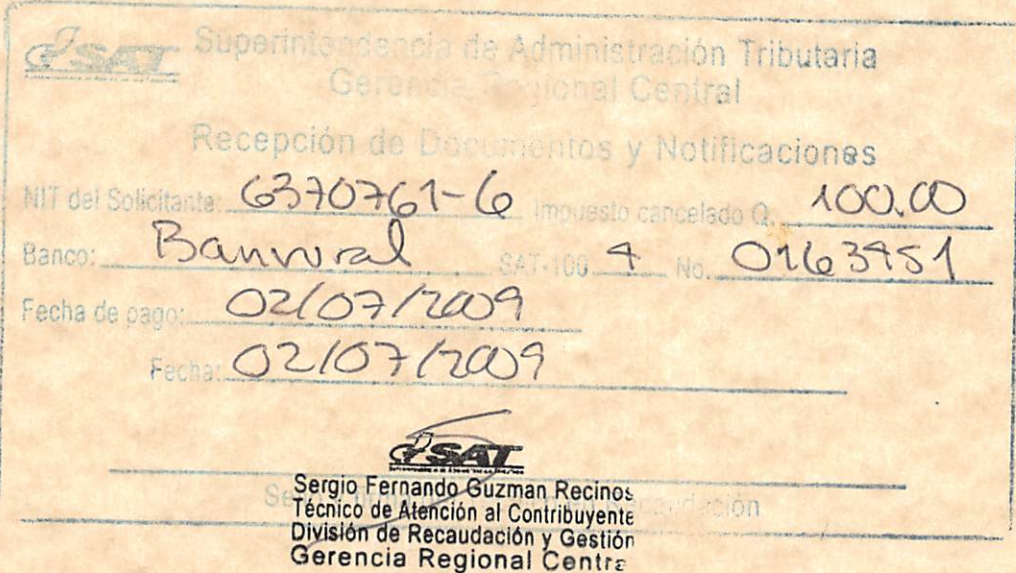 SAT Superintendencia de Administración Tributaria
Gerencia Regional Central
Recepción de Documentos y Notificaciones
NIT del Solicitante: 6370761-6 Impuesto cancelado Q. 100.00
Banco: Banrural SAT-100 4 No. 0163951
Fecha de pago: 02/07/2009
Fecha: 02/07/2009
SAT
Sergio Fernando Guzman Recinos
Técnico de Atención al Contribuyente
División de Recaudación y Gestión
Gerencia Regional Centra